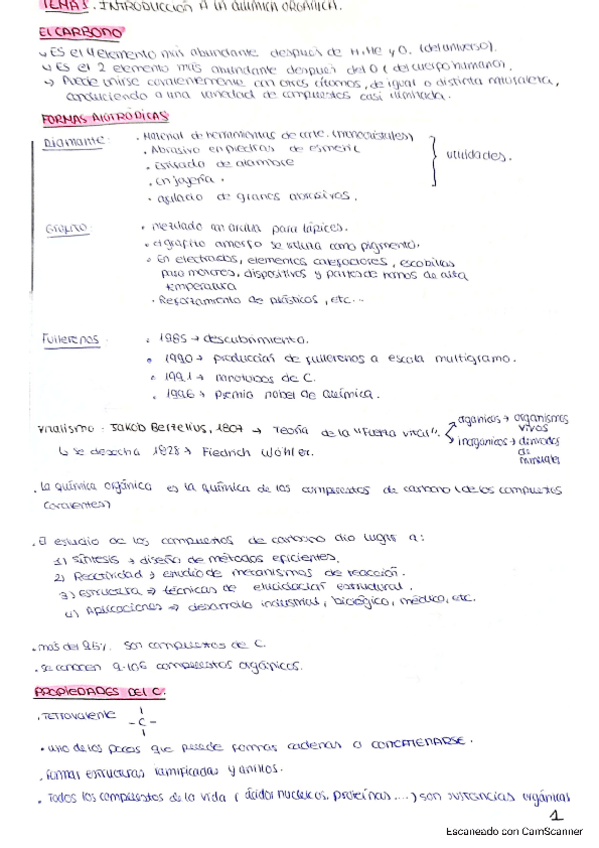 TEMA 1. INTRODUCCIÓN A LA QUÍMICA ORGÁNICA.
EL CARBONO
Es el 4 elemento más abundante después de H, He y O. (del universo).
Es el 2 elemento más abundante después del O (del cuerpo humano).
→ Puede unirse covalentemente con otros átomos, de igual o distinta naturaleza,
conduciendo a una variedad de compuestos casi ilimitada.
FORMAS ALOTRÓPICAS
Diamante:
· Material de herramientas de corte. (monocristales)
· Abrasivo en piedras de esmeril
· Estirado de alambre
· En joyería.
· afilado de granos abrasivos.
utilidades.
Grafito:
· mezclado con arcilla para lápices.
· el grafito amorfo se utiliza como pigmento.
· En electrodos, elementos calefactores, escobillas
para motores, dispositivos y partes de hornos de alta
temperatura
· Reforzamiento de plásticos, etc...
Fullerenos:
· 1985 → descubrimiento.
· 1990 → producción de fullerenos a escala multigramo.
· 1991 → nanotubos de C.
· 1996 → premio nobel de química.
Vitalismo: Jakob Berzelius, 1807 → Teoría de la "Fuerza vital".
orgánicos → organismos vivos
inorgánicos → derivados de minerales
↳ se desecha 1828 → Fiedrich Wöhler.
· La química orgánica es la química de los compuestos de carbono (de los compuestos
covalentes)
· El estudio de los compuestos de carbono dio lugar a:
1) Síntesis → diseño de métodos eficientes.
2) Reactividad → estudio de mecanismos de reacción.
3) Estructura → técnicas de elucidación estructural.
4) Aplicaciones → desarrollo industrial, biológico, médico, etc.
· más del 95% son compuestos de C.
· se conocen 9·106 compuestos orgánicos.
PROPIEDADES DEL C:
· Tetravalente -C-
· uno de los pocos que puede formas cadenas o CONCATENARSE.
· formar estructuras ramificadas y anillos.
· Todos los compuestos de la vida (ácidos nucleicos, proteínas....) son sustancias orgánicas
1
Escaneado con CamScanner